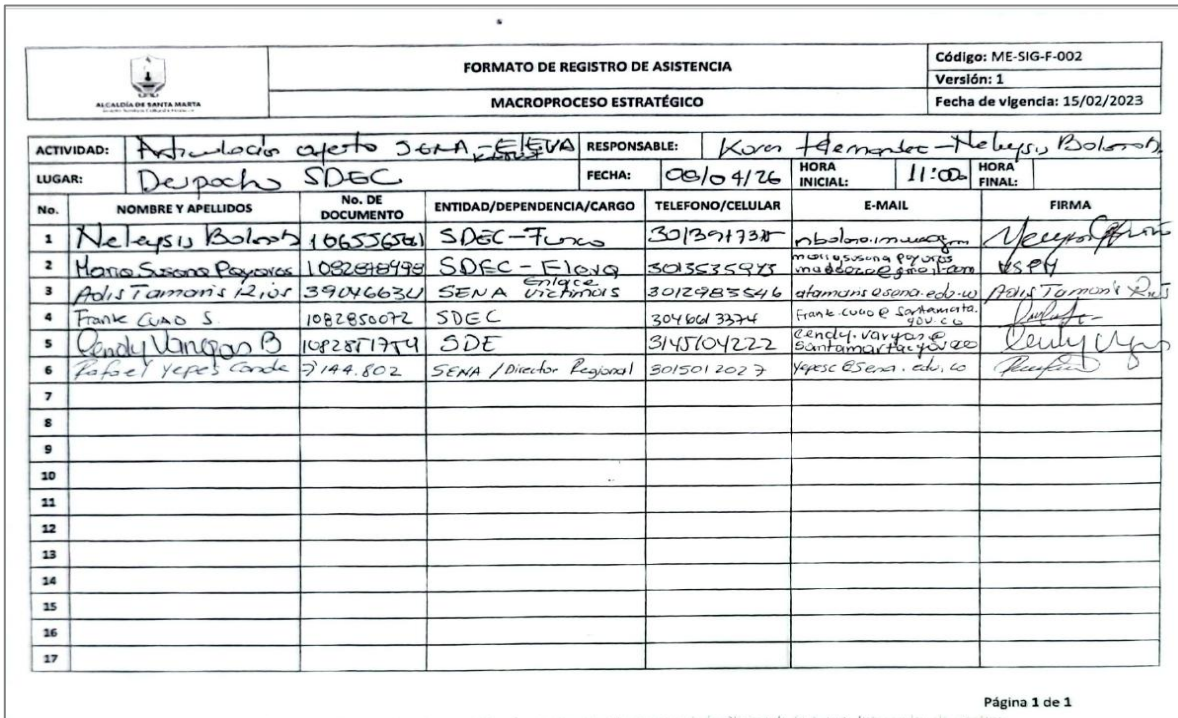 ALCALDÍA DE SANTA MARTA
FORMATO DE REGISTRO DE ASISTENCIA
MACROPROCESO ESTRATÉGICO
Código: ME-SIG-F-002
Versión: 1
Fecha de vigencia: 15/02/2023
ACTIVIDAD: Articulación oferta SENA - ELEVA RESPONSABLE: Karen Hernandez - Neleysis Bolaño
LUGAR: Despacho SDEC FECHA: 08/04/26 HORA INICIAL: 11:00 HORA FINAL:
No. NOMBRE Y APELLIDOS No. DE DOCUMENTO ENTIDAD/DEPENDENCIA/CARGO TELEFONO/CELULAR E-MAIL FIRMA
1 Neleysis Bolaño SDEC-
2 Maria Susana Payares 1082848498 SDEC - Eleva
3 Adis Tamaris Rios 39046634 SENA Enlace victimas 3012983546 atamaris@sena.edu.co Adis Tamaris Rios
4 Frank Cuao S 1082850072 SDEC 3046613374 Frank.cuao@santamarta.gov.co
5 Cendy Vargas B SDE 3145104222 cendy.vargas@santamarta.gov.co
6 Rafael Yepes Conde 7144.802 SENA / Director Regional 3015012027 Yepesc@sena.edu.co
7
8
9
10
11
12
13
14
15
16
17
Página 1 de 1